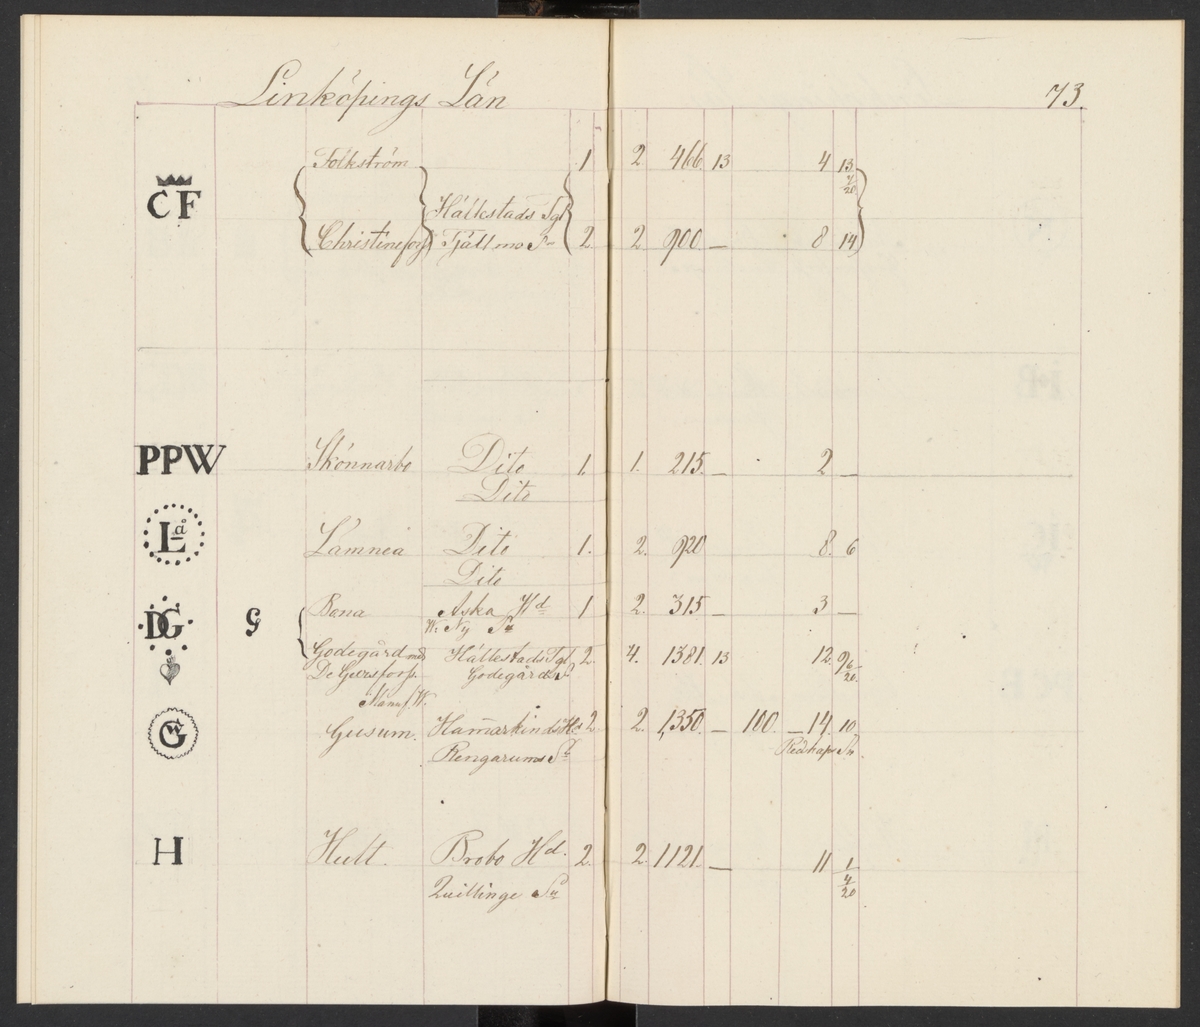 Linköpings Län 73.
Folkström 1 2 466. 13 4 13 7/20
CF
Hällestads Tgl
Christinefors Tjällmo Sn 2 2 900 — 8 14
PPW Skönnarbo Dito 1. 1. 215. — 2 —
Dito
Lå Lämneå Dito 1. 2. 920 8. 6
Dito
DG G Bona Aska Hd 1 2. 315 — 3 —
W. Ny Sn
Godegård med Hällestads Tgl 2. 4. 1381. 13 12. 9 6/20
De Geersfors Godegårds Sn
Manuf. W.
GW Gusum. Hamarkinds Hd 2 2. 1,350. — 100. — 14. 10.
Redskaps Sn
Rengarums Sn
H Hult. Brobo Hd. 2. 2. 1121. — 11 1 4/20
Quillinge Sn